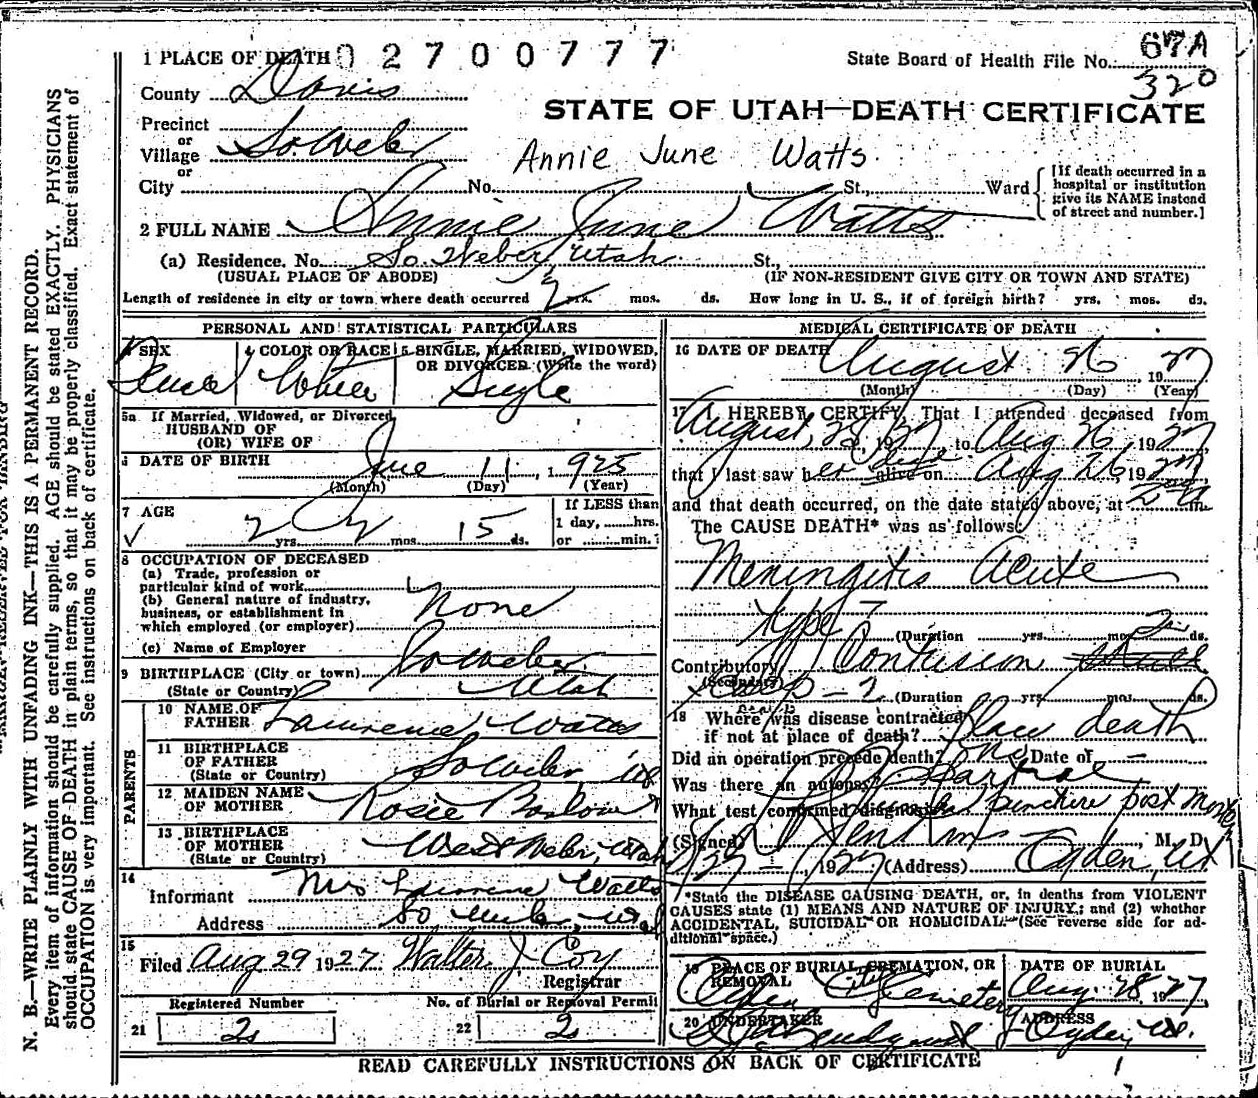 1 PLACE OF DEATH 02700777
State Board of Health File No. 67A
320
County Davis
STATE OF UTAH—DEATH CERTIFICATE
Precinct
or
Village So. Weber
or
Annie June Watts
City No. St., Ward
[If death occurred in a hospital or institution give its NAME instead of street and number.]
2 FULL NAME Annie June Watts
(a) Residence. No. So. Weber, Utah St.,
(USUAL PLACE OF ABODE) (IF NON-RESIDENT GIVE CITY OR TOWN AND STATE)
Length of residence in city or town where death occurred 2 yrs. mos. ds. How long in U. S., if of foreign birth? yrs. mos. ds.
PERSONAL AND STATISTICAL PARTICULARS
SEX
4 COLOR OR RACE
5 SINGLE, MARRIED, WIDOWED, OR DIVORCED (Write the word)
Female White Single
5a If Married, Widowed, or Divorced
HUSBAND OF
(OR) WIFE OF
6 DATE OF BIRTH June 11, 1925
(Month) (Day) (Year)
7 AGE
2 yrs. 2 mos. 15 ds.
If LESS than
1 day, hrs.
or min.?
8 OCCUPATION OF DECEASED
(a) Trade, profession or
particular kind of work
(b) General nature of industry,
business, or establishment in
which employed (or employer)
None
(c) Name of Employer
9 BIRTHPLACE (City or town) So Weber
(State or Country) Utah
PARENTS
10 NAME OF
FATHER Lawrence Watts
11 BIRTHPLACE
OF FATHER
(State or Country) So Weber Ut
12 MAIDEN NAME
OF MOTHER Rosie Barlow
13 BIRTHPLACE
OF MOTHER
(State or Country) West Weber, Utah
14
Informant Mrs Lawrence Watts
Address So Weber, Ut
15
Filed Aug 29 1927 Walter J Coy
Registrar
Registered Number No. of Burial or Removal Permit
21 2 22 2
MEDICAL CERTIFICATE OF DEATH
16 DATE OF DEATH August 26, 1927
(Month) (Day) (Year)
17 I HEREBY CERTIFY, That I attended deceased from
August, 1927 to Aug 26, 1927
that I last saw her alive on Aug 26, 1927
and that death occurred, on the date stated above, at m
The CAUSE DEATH* was as follows:
Meningitis Acute
type -
(Duration yrs. mos. 2 ds.
Contributory Contusion
(Secondary)
(Duration yrs. mos. ds.)
18 Where was disease contracted
if not at place of death? Place death
Did an operation precede death? no Date of -
Was there an autopsy?
What test confirmed diagnosis? puncture post mortem
(Signed) , M. D.
1927 (Address) Ogden, Ut
*State the DISEASE CAUSING DEATH, or, in deaths from VIOLENT
CAUSES state (1) MEANS AND NATURE OF INJURY; and (2) whether
ACCIDENTAL, SUICIDAL OR HOMICIDAL. (See reverse side for ad-
ditional space.)
19 PLACE OF BURIAL, CREMATION, OR
REMOVAL
Ogden City Cemetery
DATE OF BURIAL
Aug. 28 1927
20 UNDERTAKER
ADDRESS
Ogden Ut.
READ CAREFULLY INSTRUCTIONS ON BACK OF CERTIFICATE
N. B.—WRITE PLAINLY WITH UNFADING INK—THIS IS A PERMANENT RECORD.
Every item of information should be carefully supplied. AGE should be stated EXACTLY. PHYSICIANS
should state CAUSE OF DEATH in plain terms, so that it may be properly classified. Exact statement of
OCCUPATION is very important. See instructions on back of certificate.